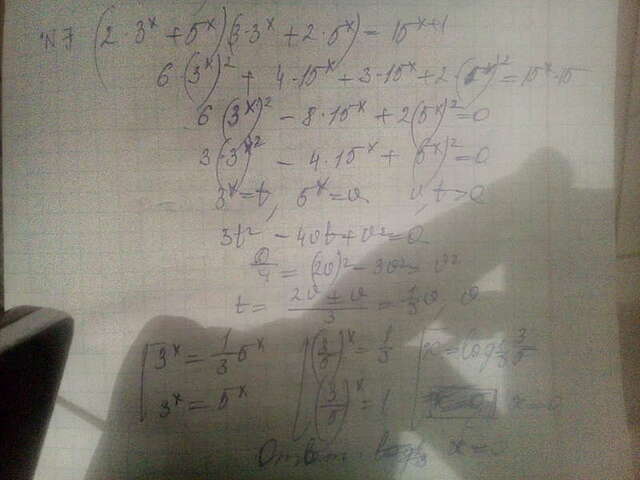 N 7 (2·3^x + 5^x)(3·3^x + 2·5^x) = 15^{x+1}
6·(3^x)^2 + 4·15^x + 3·15^x + 2·(5^x)^2 = 15^x·15
6(3^x)^2 - 8·15^x + 2(5^x)^2 = 0
3(3^x)^2 - 4·15^x + (5^x)^2 = 0
3^x = t, 5^x = v v, t > 0
3t^2 - 4vt + v^2 = 0
D/4 = (2v)^2 - 3v^2 = v^2
t = (2v ± v)/3 = 1/3 v, v
3^x = 1/3 5^x (3/5)^x = 1/3
3^x = 5^x (3/5)^x = 1 x = 0
Ответ: